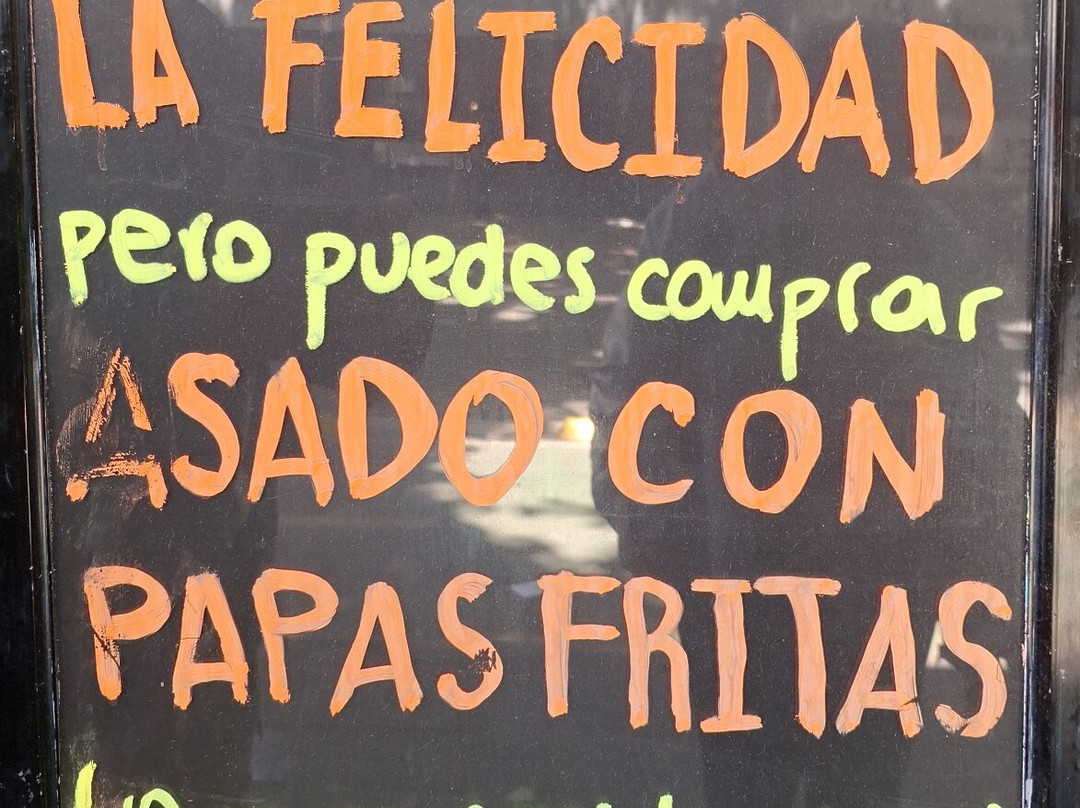 LA FELICIDAD
pero puedes comprar
ASADO CON
PAPAS FRITAS